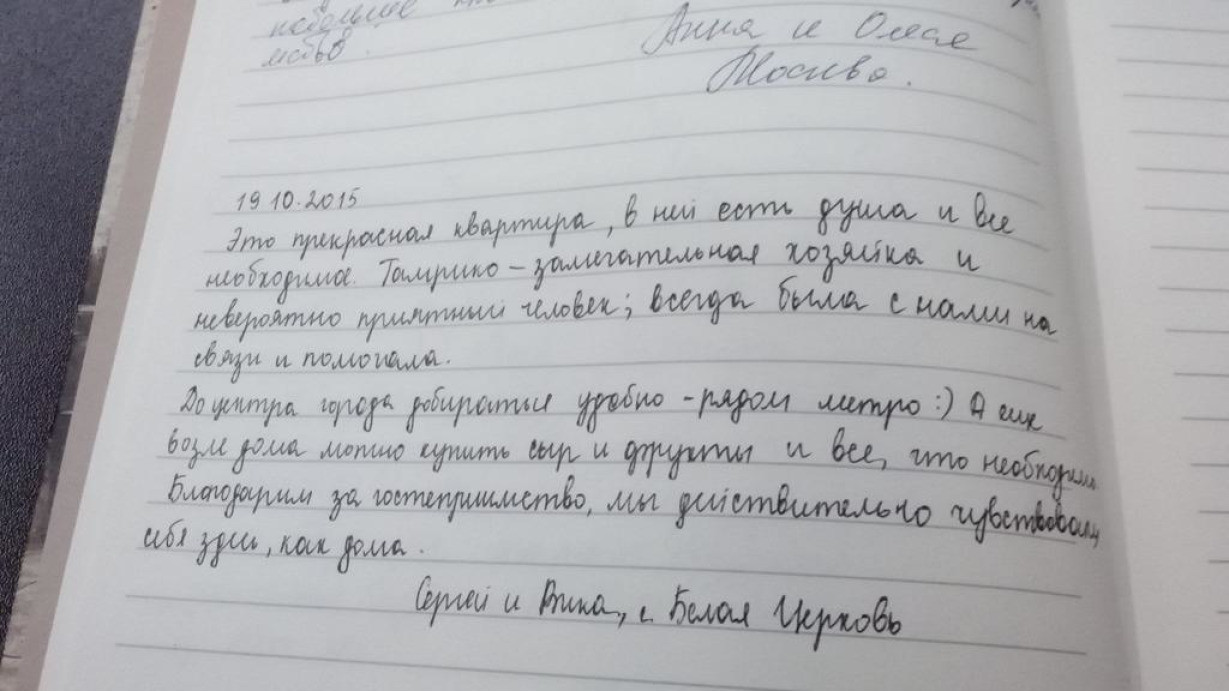 небольшие
Анна и Олеся
Москва.
19.10.2015
Это прекрасная квартира, в ней есть душа и все
необходимое. Тамрико – замечательная хозяйка и
невероятно приятный человек; всегда была с нами на
связи и помогала.
До центра города добираться удобно - рядом метро :) А еще
возле дома можно купить сыр и фрукты и все, что необходимо.
Благодарим за гостеприимство, мы действительно чувствовали
себя здесь, как дома.
Сергей и Вика, г. Белая Церковь